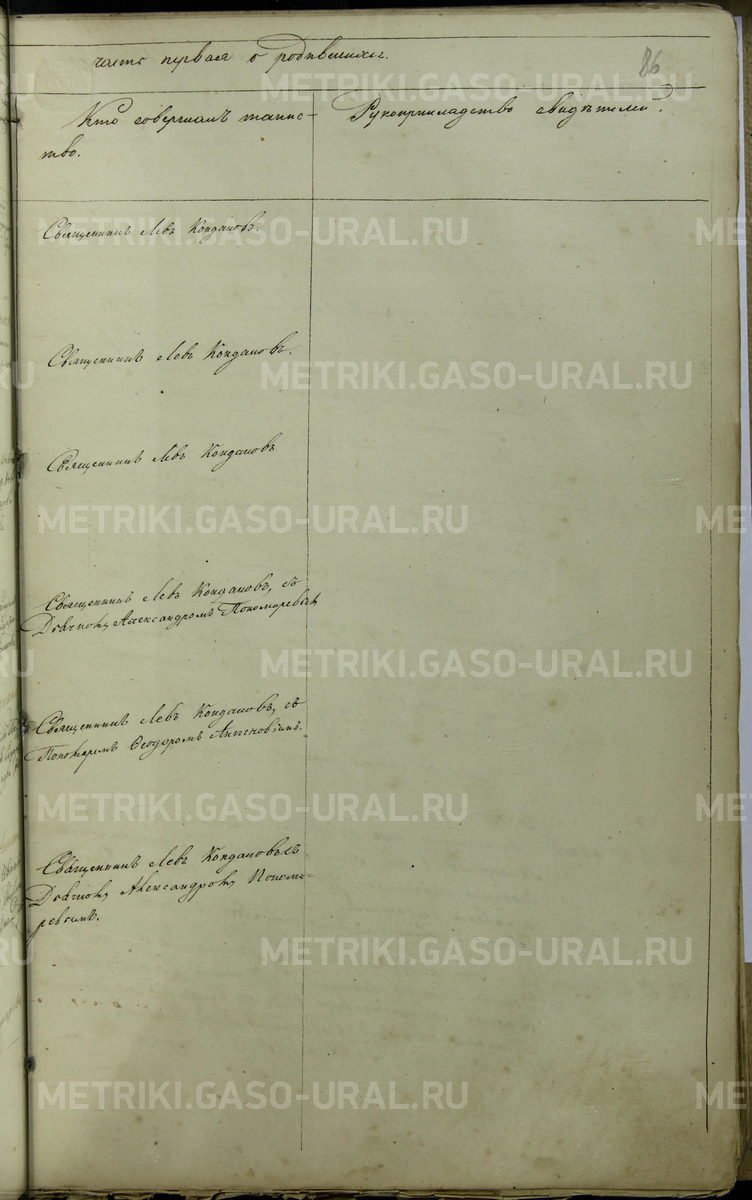 часть первая о родившихся.
86
Кто совершалъ таинс-
тво.
Рукоприкладство свидѣтелей.
Священникъ Левъ Кондаковъ.
Священникъ Левъ Кондаковъ.
Священникъ Левъ Кондаковъ.
Священникъ Левъ Кондаковъ, съ
Дьячкомъ Александромъ Пономаревымъ
Священникъ Левъ Кондаковъ, съ
Пономаремъ Ѳеодоромъ
Священникъ Левъ Кондаковъ съ
Дьячкомъ Александромъ Понома-
ревымъ.
METRIKI.GASO-URAL.RU